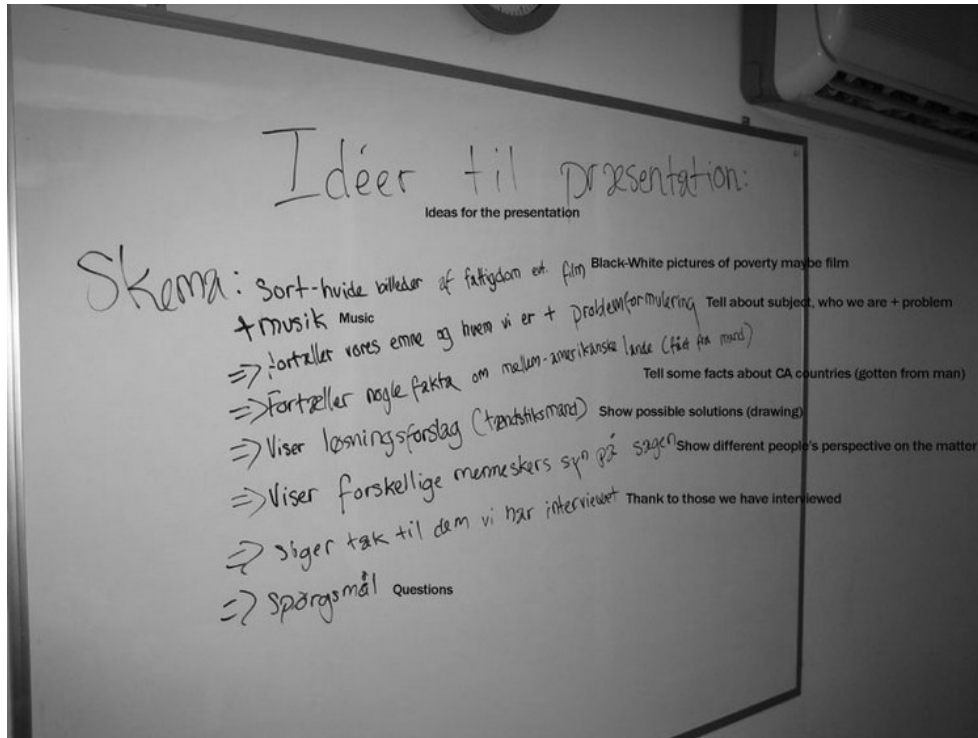 Idéer til præsentation:
Ideas for the presentation
Skema: Sort-hvide billeder af fattigdom evt. film Black-White pictures of poverty maybe film
+ musik Music
=> Fortæller vores emne og hvem vi er + problemformulering Tell about subject, who we are + problem
=> Fortæller nogle fakta om mellem-amerikanske lande (fået fra mand)
Tell some facts about CA countries (gotten from man)
=> Viser løsningsforslag (tændstiksmand) Show possible solutions (drawing)
=> Viser forskellige menneskers syn på sagen Show different people's perspective on the matter
=> Siger tak til dem vi har interviewet Thank to those we have interviewed
=> Spørgsmål Questions